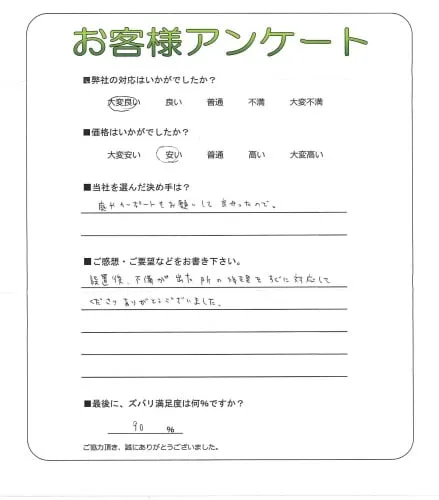 お客様アンケート
■弊社の対応はいかがでしたか？
大変良い 良い 普通 不満 大変不満
■価格はいかがでしたか？
大変安い 安い 普通 高い 大変高い
■当社を選んだ決め手は？
カーポートもお願いして良かったので。
■ご感想・ご要望などをお書き下さい。
設置後、不備が出た所の をすぐに対応して
くださりありがとうございました。
■最後に、ズバリ満足度は何％ですか？
90 ％
ご協力頂き、誠にありがとうございました。